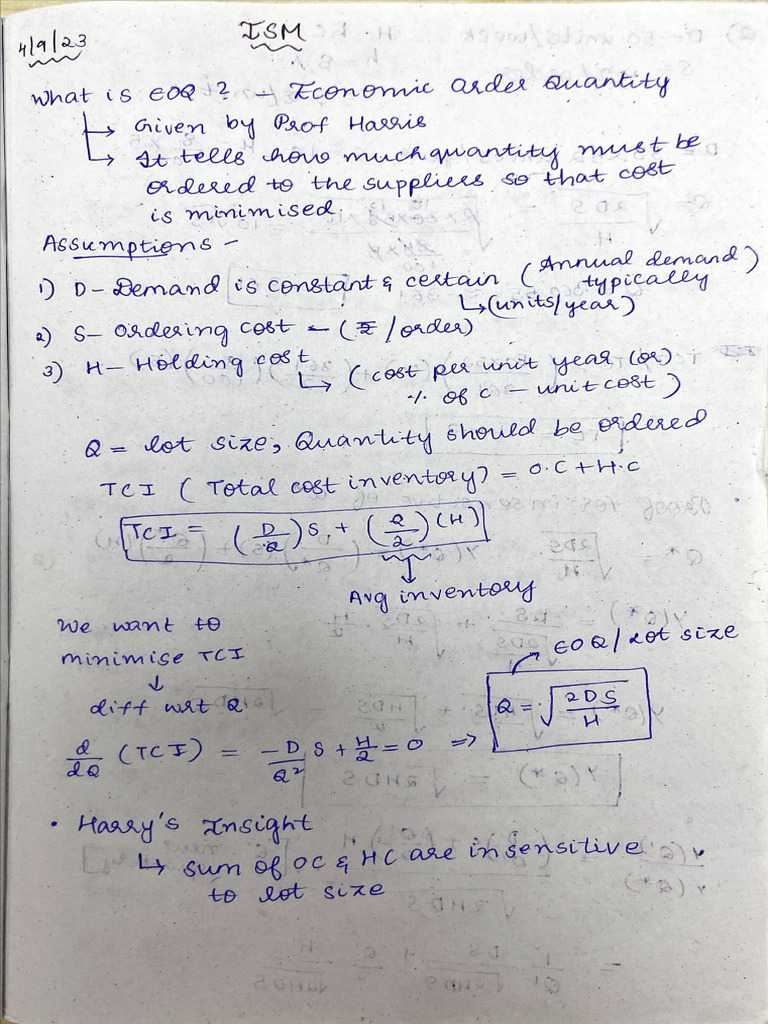 4/9/23
ISM
What is EOQ? - Economic Order Quantity
↳ Given by Prof Harris
↳ It tells how much quantity must be
ordered to the suppliers so that cost
is minimised.
Assumptions -
1) D - Demand is constant & certain (Annual demand typically)
↳ (units/year)
2) S - Ordering cost - (₹/order)
3) H - Holding cost
↳ (cost per unit year (or)
% of c - unit cost)
Q = lot size, Quantity should be ordered
TCI (Total cost inventory) = O.C + H.C
TCI = (D/Q)S + (Q/2)(H)
↓
Avg inventory
We want to
minimise TCI
↓
diff wrt Q
EOQ/lot size
d/dQ (TCI) = -D/Q² S + H/2 = 0 => Q = √(2DS/H)
• Harry's Insight
↳ sum of OC & HC are insensitive
to lot size